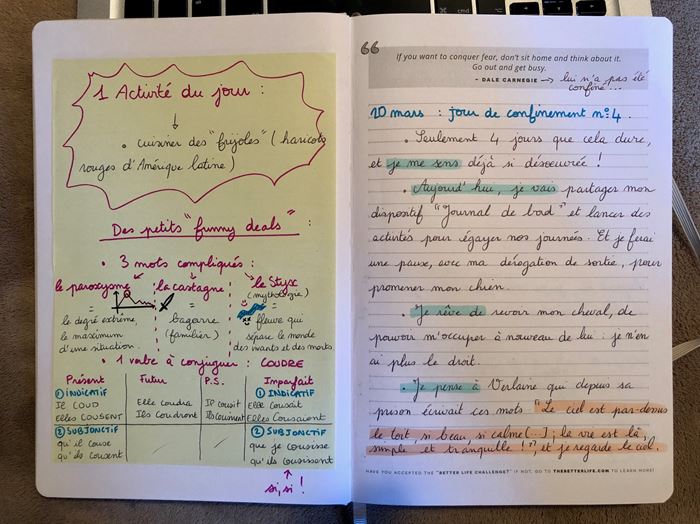 1 Activité du jour :
• cuisiner des "frijoles" (haricots
rouges d'Amérique latine)
Des petits "funny deals" :
• 3 mots compliqués :
le paroxysme
=
le degré extrême,
le maximum
d'une situation.
la castagne
=
bagarre
(familier)
le Styx
(mythologie)
=
fleuve qui
sépare le monde
des vivants et des morts.
• 1 verbe à conjuguer : COUDRE
Présent Futur P.S. Imparfait
① INDICATIF
Il COUD
Elles COUSENT
Elle coudra
Ils Coudront
Il cousit
Ils cousirent
① INDICATIF
Elle cousait
Elles Cousaient
② SUBJONCTIF
qu'il couse
qu'ils cousent
② SUBJONCTIF
que je cousisse
qu'ils cousissent
si, si !
If you want to conquer fear, don't sit home and think about it.
Go out and get busy.
- DALE CARNEGIE → lui n'a pas été
confiné...
20 mars : jour de confinement n°4.
• Seulement 4 jours que cela dure,
et je me sens déjà si désoeuvrée !
• Aujourd'hui, je vais partager mon
dispositif "Journal de bord" et lancer des
activités pour égayer nos journées. Et je ferai
une pause, avec ma dérogation de sortie, pour
promener mon chien.
• Je rêve de revoir mon cheval, de
pouvoir m'occuper à nouveau de lui : je n'en
ai plus le droit.
• Je pense à Verlaine qui depuis sa
prison écrivait ces mots "Le ciel est par-dessus
le toit, si beau, si calme (...), la vie est là
simple et tranquille !", et je regarde le ciel.
HAVE YOU ACCEPTED THE "BETTER LIFE CHALLENGE"? IF NOT, GO TO THEBETTERLIFE.COM TO LEARN MORE!